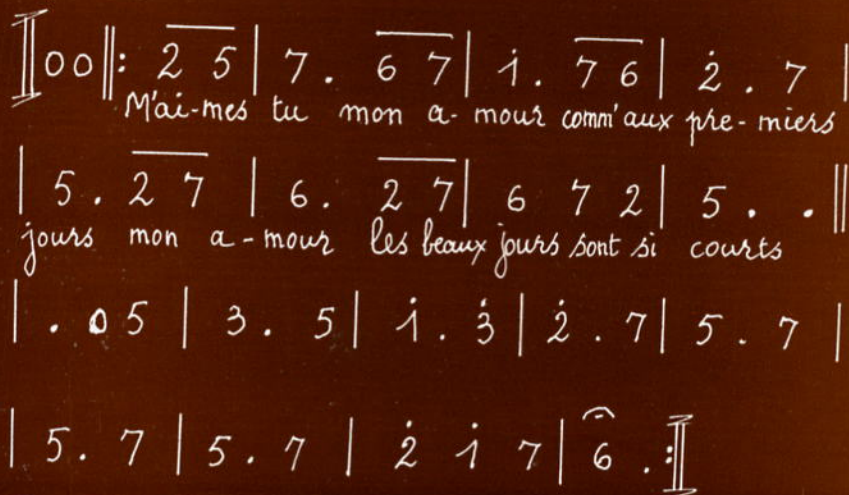 00‖: 2 5 | 7 . 6 7 | 1̇ . 7 6 | 2̇ . 7 |
M'ai-mes tu mon a-mour comm' aux pre-miers
| 5 . 2 7 | 6 . 2 7 | 6 7 2 | 5 . . ‖
jours mon a-mour les beaux jours sont si courts
| . 0 5 | 3 . 5 | 1̇ . 3̇ | 2̇ . 7 | 5 . 7 |
| 5 . 7 | 5 . 7 | 2̇ 1̇ 7 | 6 . :‖